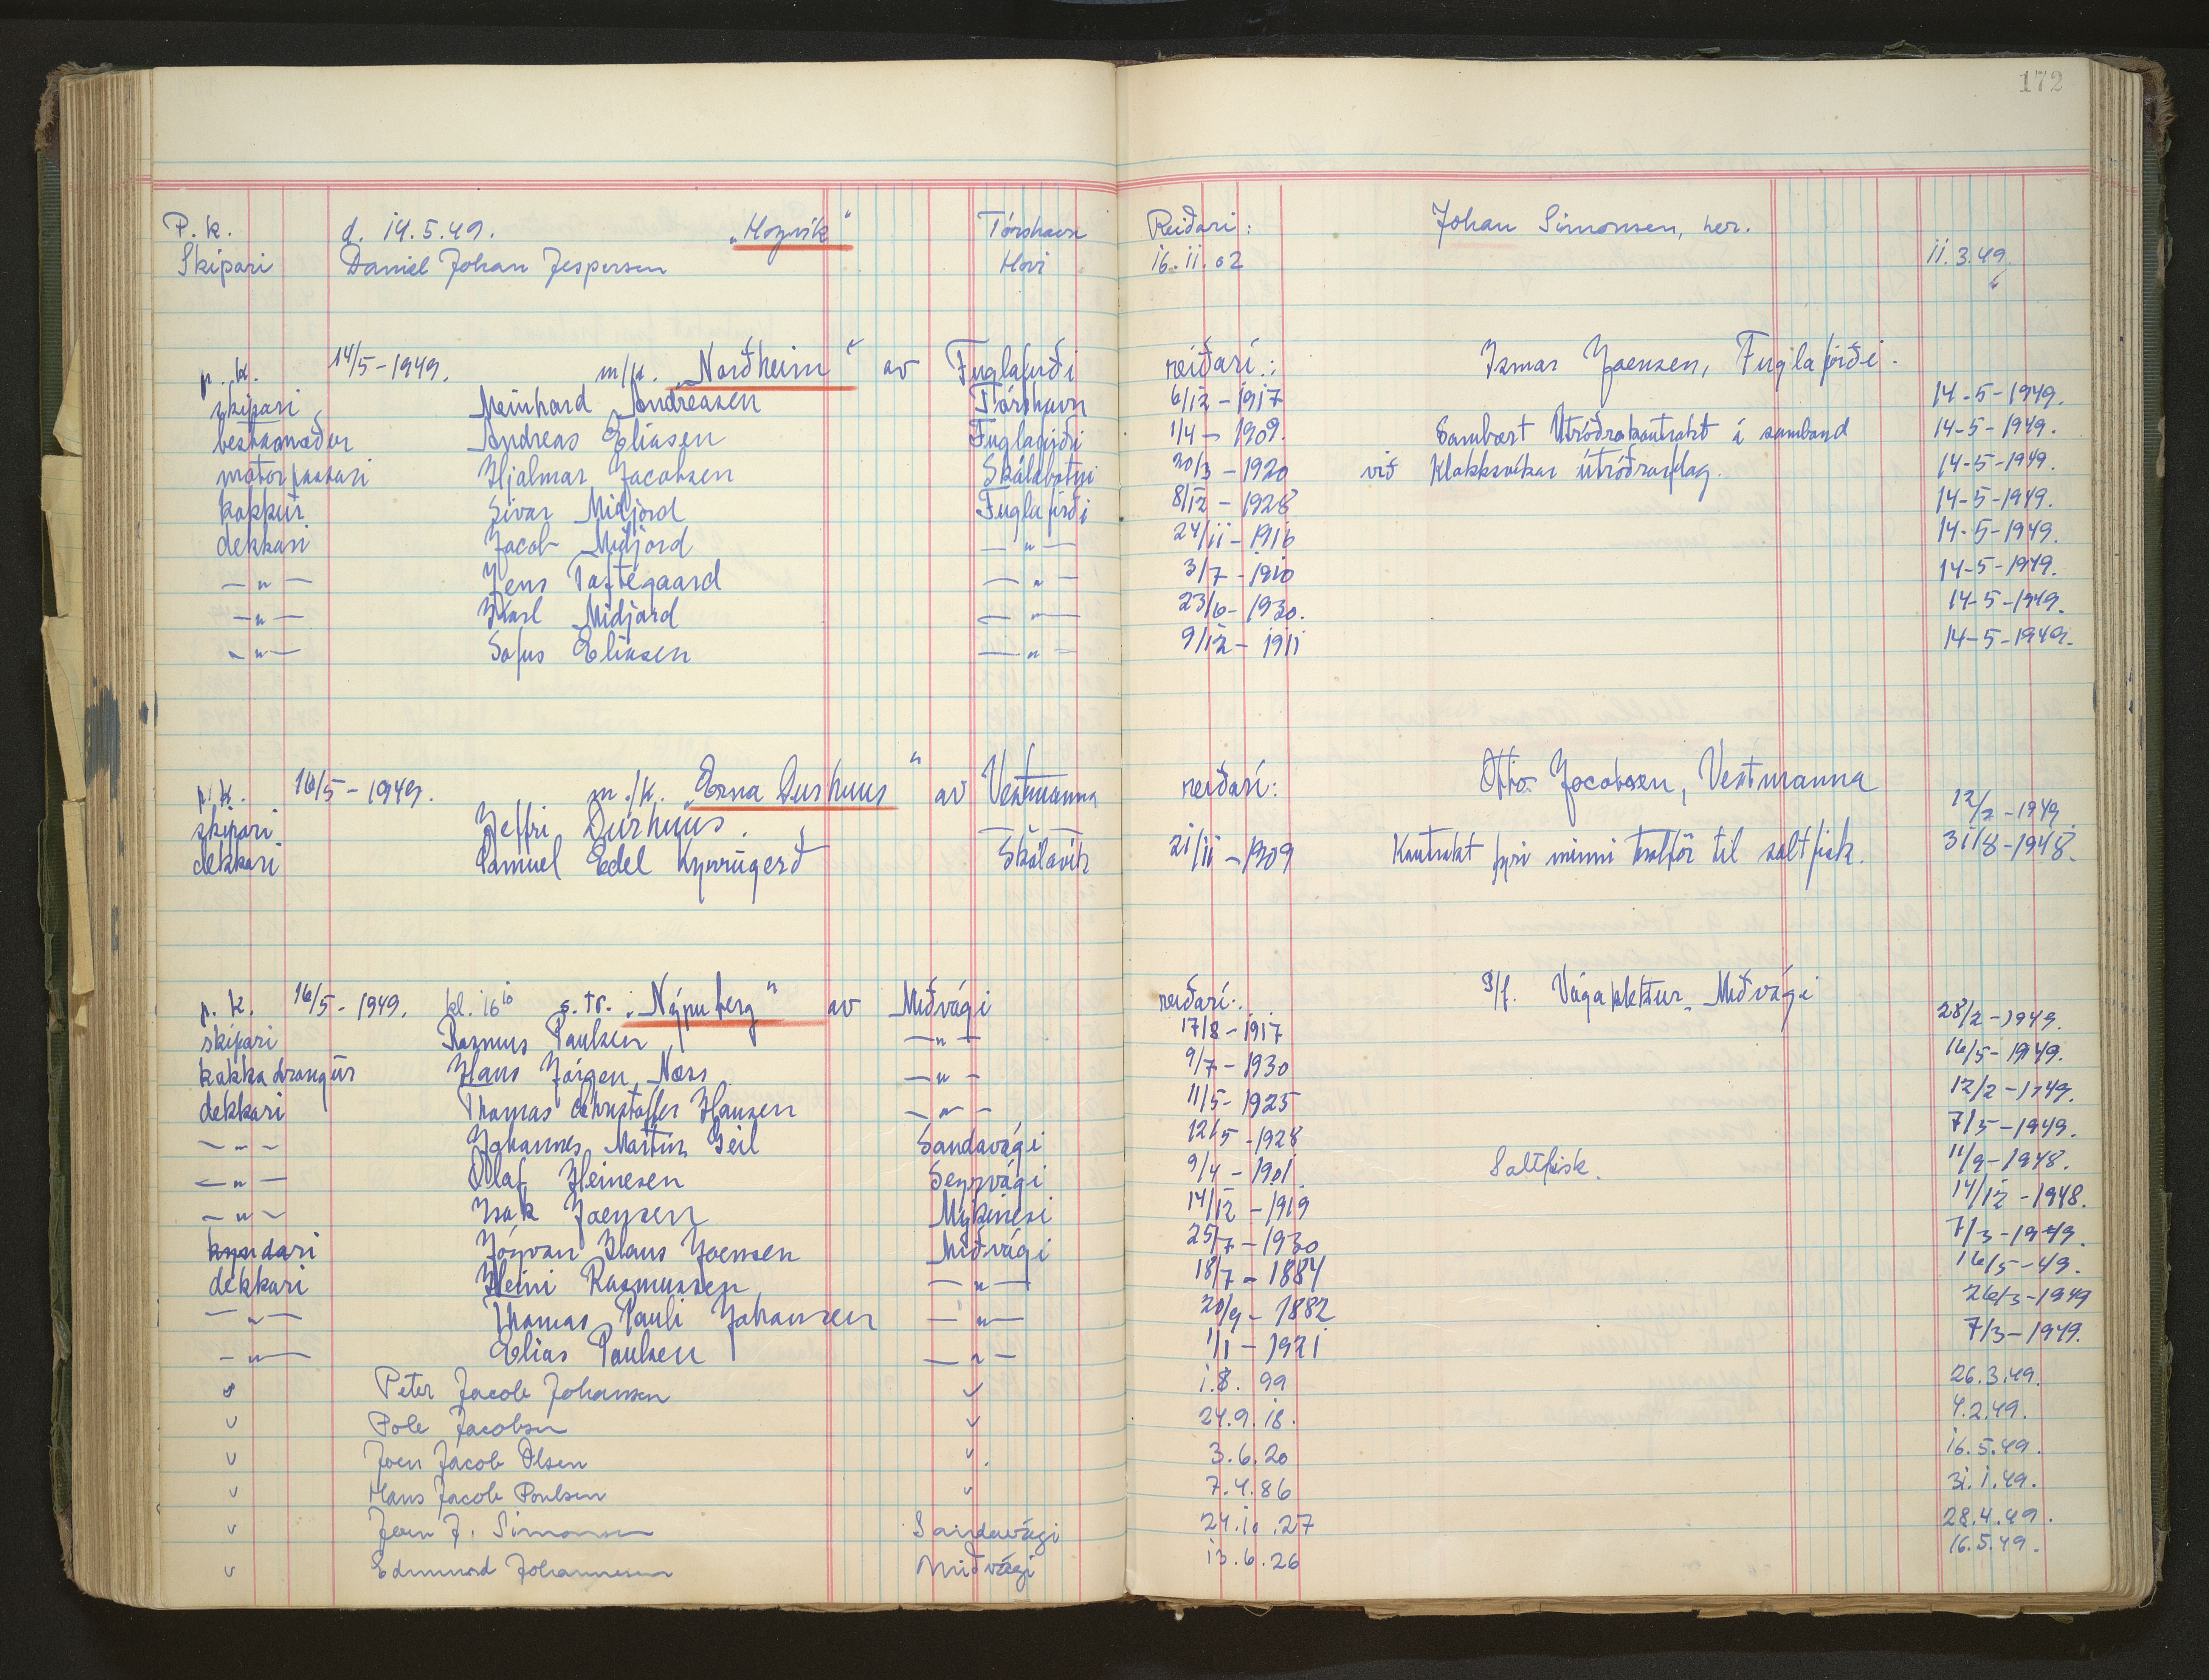 172
P.k. d. 14.5.49. „Hoyvík“ Tórshavn Reiðari: Johan Simonsen, her.
Skipari Daniel Johan Jespersen Hovi 16.11.02 11.3.49
p.k. 14/5-1949. m/k. „Norðheim“ av Fuglafirði reiðari: Ismar Joensen, Fuglafirði.
skipari Meinhard Andreasen Tórshavn 6/12-1917 14-5-1949.
bestamaður Andreas Eliasen Fuglafirði 1/4-1909. Sambært Útróðrakontrakt í samband 14-5-1949.
motorpassari Hjalmar Jacobsen Skálabotni 30/3-1920 við Klakksvíkar útróðrarflag. 14-5-1949.
kokkur Sivar Midjord Fuglafirði 8/12-1928 14-5-1949.
dekkari Jacob Midjord —"— 24/11-1916 14-5-1949.
—"— Jens Toftegaard —"— 3/7-1910 14-5-1949.
—"— Karl Midjord —"— 23/6-1930. 14-5-1949.
—"— Sofus Eliasen —"— 9/12-1911 14-5-1949.
p.k. 16/5-1949. m./k. „Erna Durhuus“ av Vestmanna reiðari: Otto Jacobsen, Vestmanna
skipari Jeffri Durhuus. — — 12/2-1949.
dekkari Samuel Edel Kynrúgerð Skálavík 21/11-1909 Kontrakt fyri minni trolför til saltfisk. 31/8-1948.
p.k. 16/5-1949. kl. 16¹⁰ s.tr. „Nýpuberg“ av Miðvági reiðari: S/f. Vága Miðvági
skipari Rasmus Paulsen —"— 17/8-1917 28/2-1949.
kokkadrongur Hans Jörgen Næss —"— 9/7-1930 16/5-1949.
dekkari Thomas Christoffer Hansen —"— 11/5-1925 12/2-1949.
—"— Johannes Martin Geil Sandavági 12/5-1928 7/5-1949.
—"— Olaf Heinesen Sørvági 9/4-1901. Saltfisk. 11/9-1948.
—"— Isak Joensen Mykinesi 14/12-1919 14/12-1948.
kyndari Jógvan Hans Joensen Miðvági 25/7-1930 7/3-1949.
dekkari Heini Rasmussen —"— 18/7-1884 16/5-49.
—"— Thomas Pauli Johansen —"— 20/9-1882 26/3-1949
—"— Elias Paulsen —"— 1/1-1921 7/3-1949.
" Peter Jacob Johansen " 1.8.99 26.3.49.
" Pole Jacobsen " 24.9.18. 4.2.49.
" Joen Jacob Olsen " 3.6.20 16.5.49.
" Hans Jacob Poulsen " 7.4.86 31.1.49.
" Joen J. Simonsen Sandavági 24.10.27 28.4.49.
" Edmund Johannesen Miðvági 13.6.26 16.5.49.